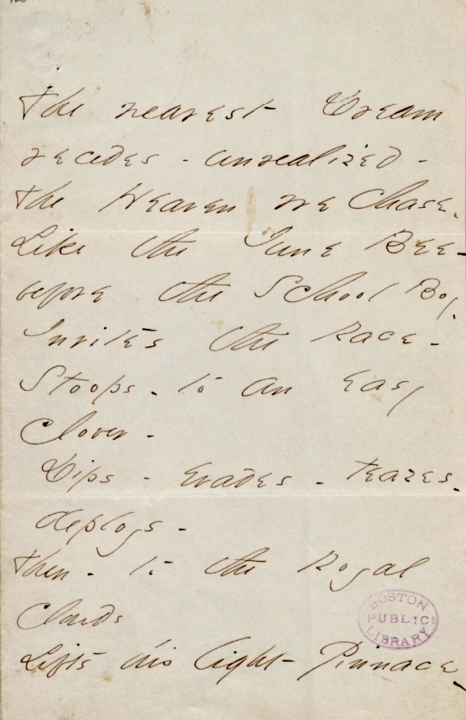 The nearest Dream
recedes - unrealized -
The Heaven we chase,
Like the June Bee -
before the School Boy,
Invites the Race -
Stoops - to an easy
Clover -
Dips - Evades - Teazes -
deploys -
Then - to the Royal
Clouds
Lifts his light Pinnace -
BOSTON
PUBLIC
LIBRARY